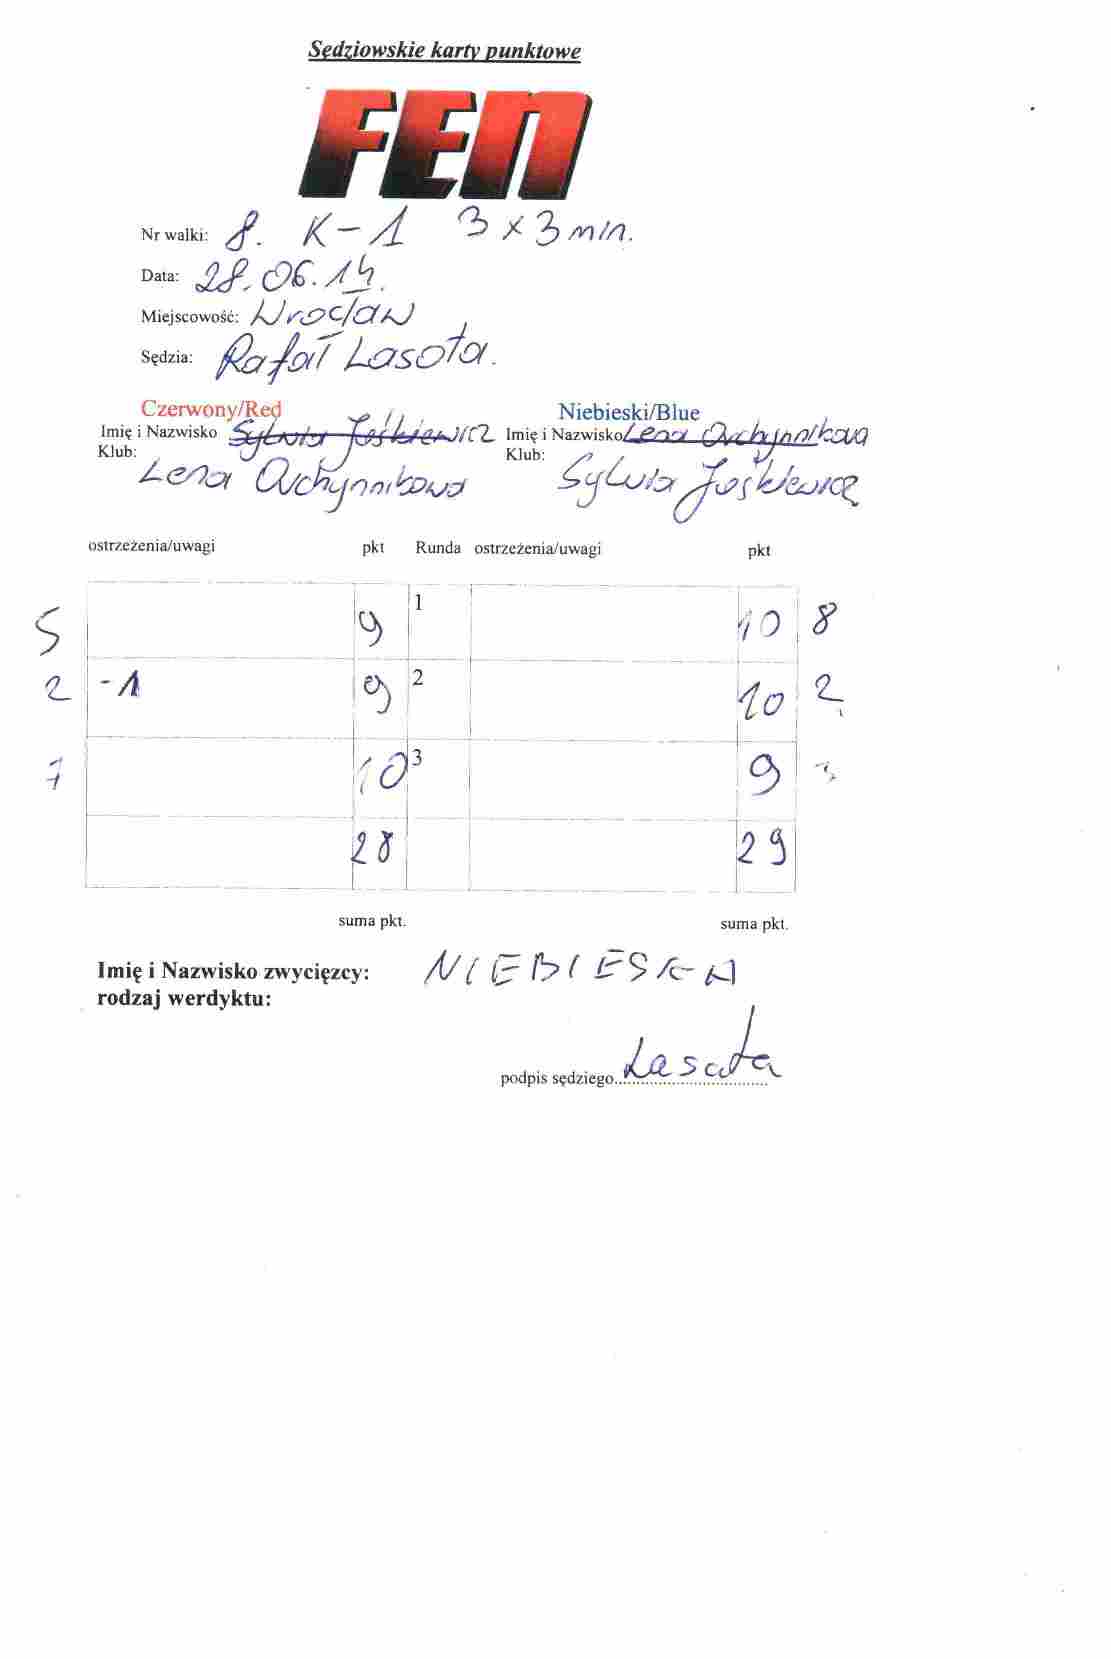 Sędziowskie karty punktowe
FEN
Nr walki: 8. K-1 3x3 min.
Data: 28.06.14.
Miejscowość: Wrocław
Sędzia: Rafał Lasota.
Czerwony/Red Niebieski/Blue
Imię i Nazwisko Sylwia Juśkiewicz Imię i Nazwisko Lena Ovchynnikova
Klub: Klub:
Lena Ovchynnikowa Sylwia Juśkiewicz
ostrzeżenia/uwagi pkt Runda ostrzeżenia/uwagi pkt
5 9 1 10 8
2 -1 9 2 10 2
7 10 3 9 3
28 29
suma pkt. suma pkt.
Imię i Nazwisko zwycięzcy: NIEBIESKA
rodzaj werdyktu:
podpis sędziego Lasota